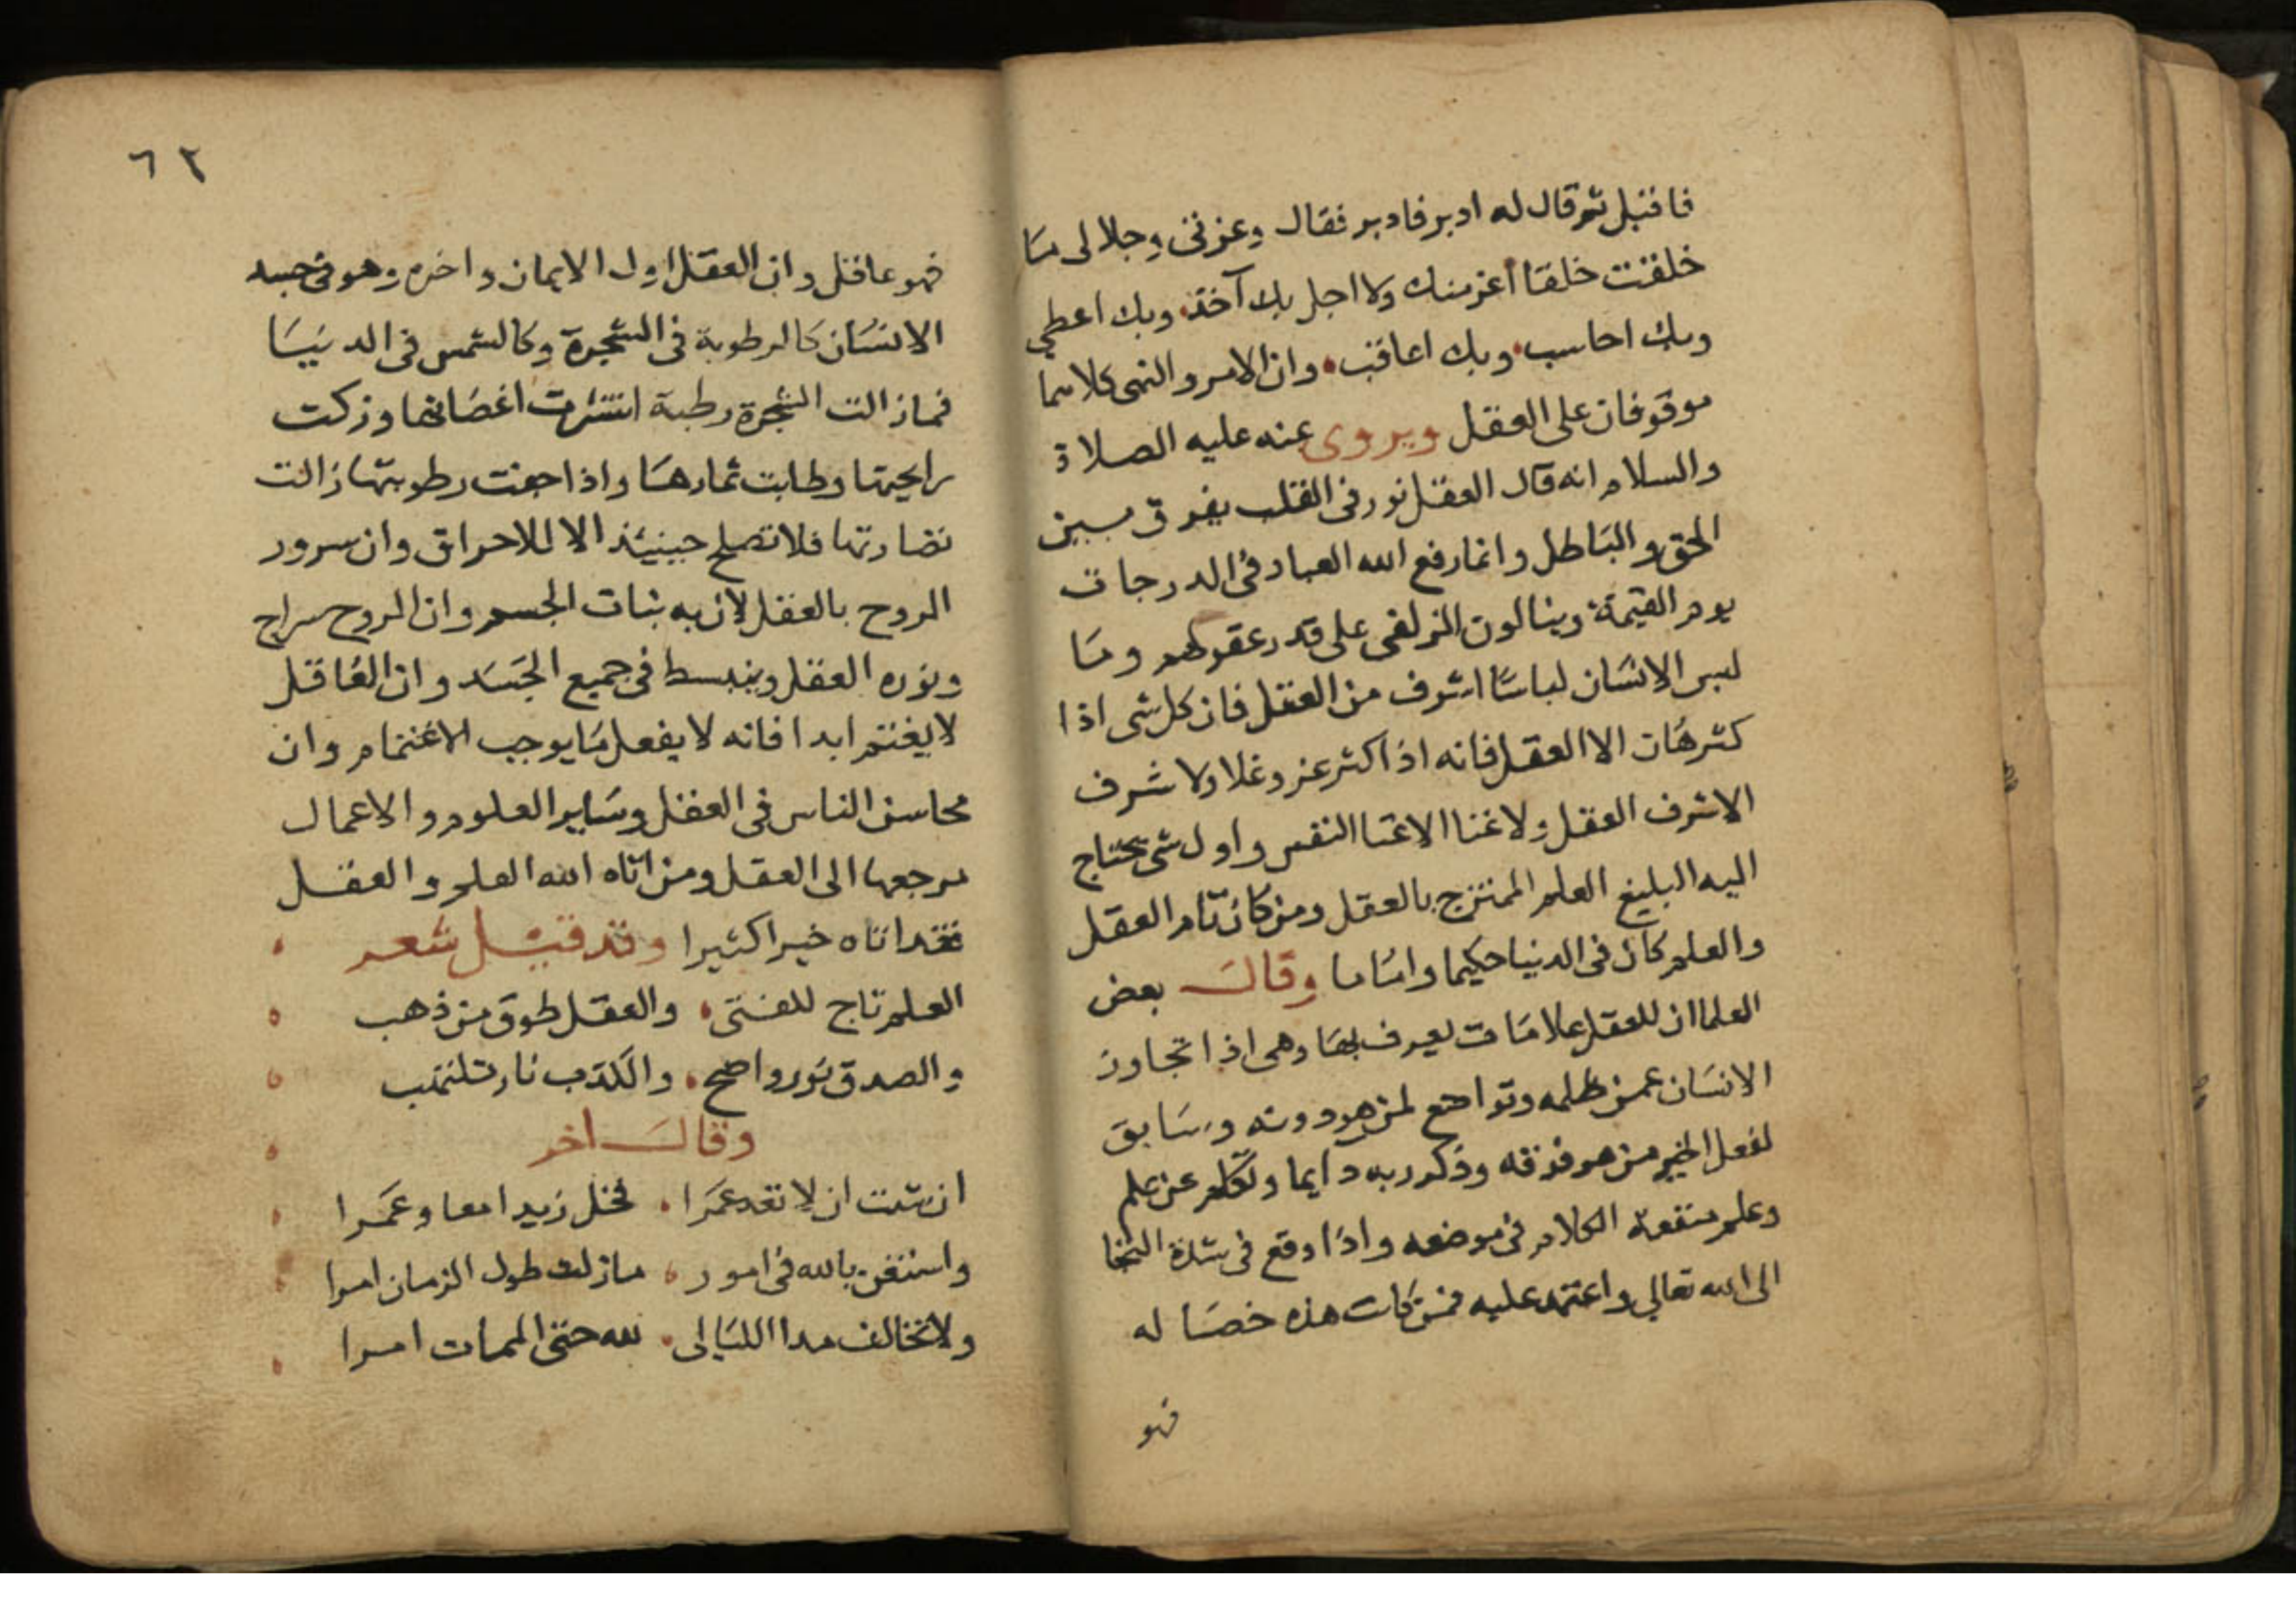 فاقبل ثم قال له ادبر فادبر فقال وعزتى وجلالى ما
خلقت خلقا اعز منك ولا اجل بك آخذ وبك اعطي
وبك احاسب وبك اعاقب وان الامر والنهى كلاهما
موقوفان على العقل ويروى عنه عليه الصلاة
والسلام انه قال العقل نور فى القلب يفرق بين
الحق والباطل وانما رفع الله العباد فى الدرجات
يوم القيمة وينالون الزلفى على قدر عقولهم وما
لبس الانسان لباسا اشرف من العقل فان كل شى اذا
كثر هان الا العقل فانه اذا كثر عز وغلا ولا شرف
الا شرف العقل ولا غنا الا غنا النفس واول شى يحتاج
اليه البليغ العلم الممتزج بالعقل ومن كان تام العقل
والعلم كان فى الدنيا حكيما واماما وقال بعض
العلما ان للعقل علامات يعرف بها وهى اذا تجاوز
الانسان عمن ظلمه وتواضع لمن هو دونه وسابق
لفعل الخير من هو فوقه وذكر ربه دايما وتكلم عن علم
وعلم منفعة الكلام فى موضعه واذا وقع فى شدة التجا
الى الله تعالى واعتمد عليه فمن كانت هذه خصا له
فهو
٦٢
فهو عاقل وان العقل اول الايمان واخره وهو فى جسد
الانسان كالرطوبة فى الشجرة وكالشمس فى الدنيا
فما زالت الشجرة رطبة انتشرت اغصانها وزكت
رايحتها وطابت ثمارها واذا جفت رطوبتها زالت
نضارتها فلا تصلح حينيئذ الا للاحراق وان سرور
الروح بالعقل لان به ثبات الجسم وان الروح سراج
ونوره العقل وينبسط فى جميع الجسد وان العاقل
لا يغتم ابدا فانه لا يفعل ما يوجب الاغتمام وان
محاسن الناس فى العقل وساير العلوم والاعمال
مرجعها الى العقل ومن اتاه الله العلم والعقل
فقد اتاه خيرا كثيرا وقد قيل شعر
العلم تاج للفتى والعقل طوق من ذهب
والصدق نور واضح والكذب نار تلتهب
وقال اخر
ان شئت ان لا تعد عمرا فخل زيدا معا وعمرا
واستغن بالله فى امور ما زلت طول الزمان امرا
ولا تخالف مدا الليالى لله حتى الممات امرا